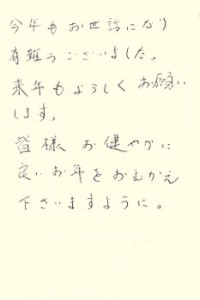 今年もお世話になり
有難うございました。
来年もよろしくお願い
します。
皆様 お健やかに
良いお年をおむかえ
下さいますように。